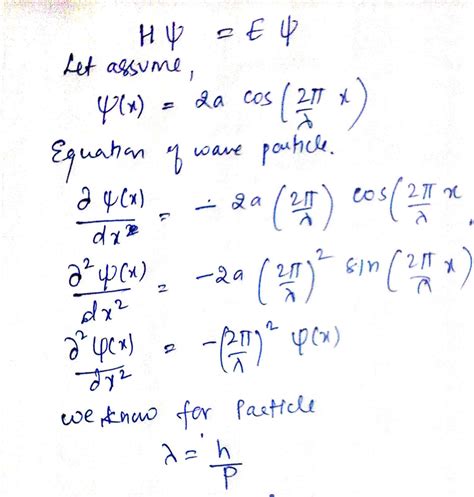 Hψ = E ψ
Let assume,
ψ(x) = 2a cos(2π/λ x)
Equation of wave particle.
∂ψ(x)/dx² = - 2a (2π/λ) cos(2π/λ x
∂²ψ(x)/dx² = -2a (2π/λ)² sin(2π/λ x)
∂²ψ(x)/dx² = -(2π/λ)² ψ(x)
we know for Particle
λ = h/P